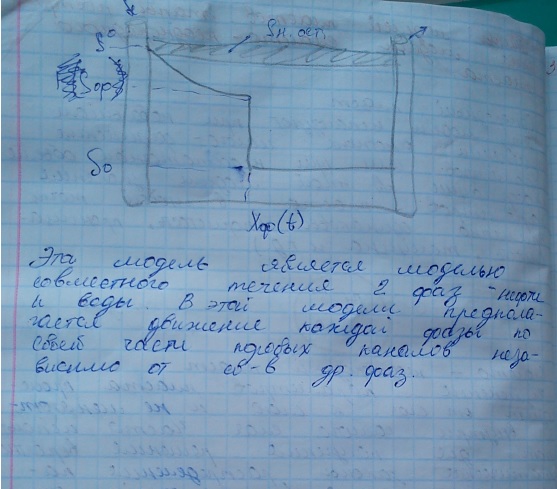 S⁰
Sн. ост.
Sфр
S₀
Xфр(t)
Эта модель является моделью
совместного течения 2 фаз - нефти
и воды. В этой модели предпола-
гается движение каждой фазы по
своей части поровых каналов неза-
висимо от св-в др. фаз.